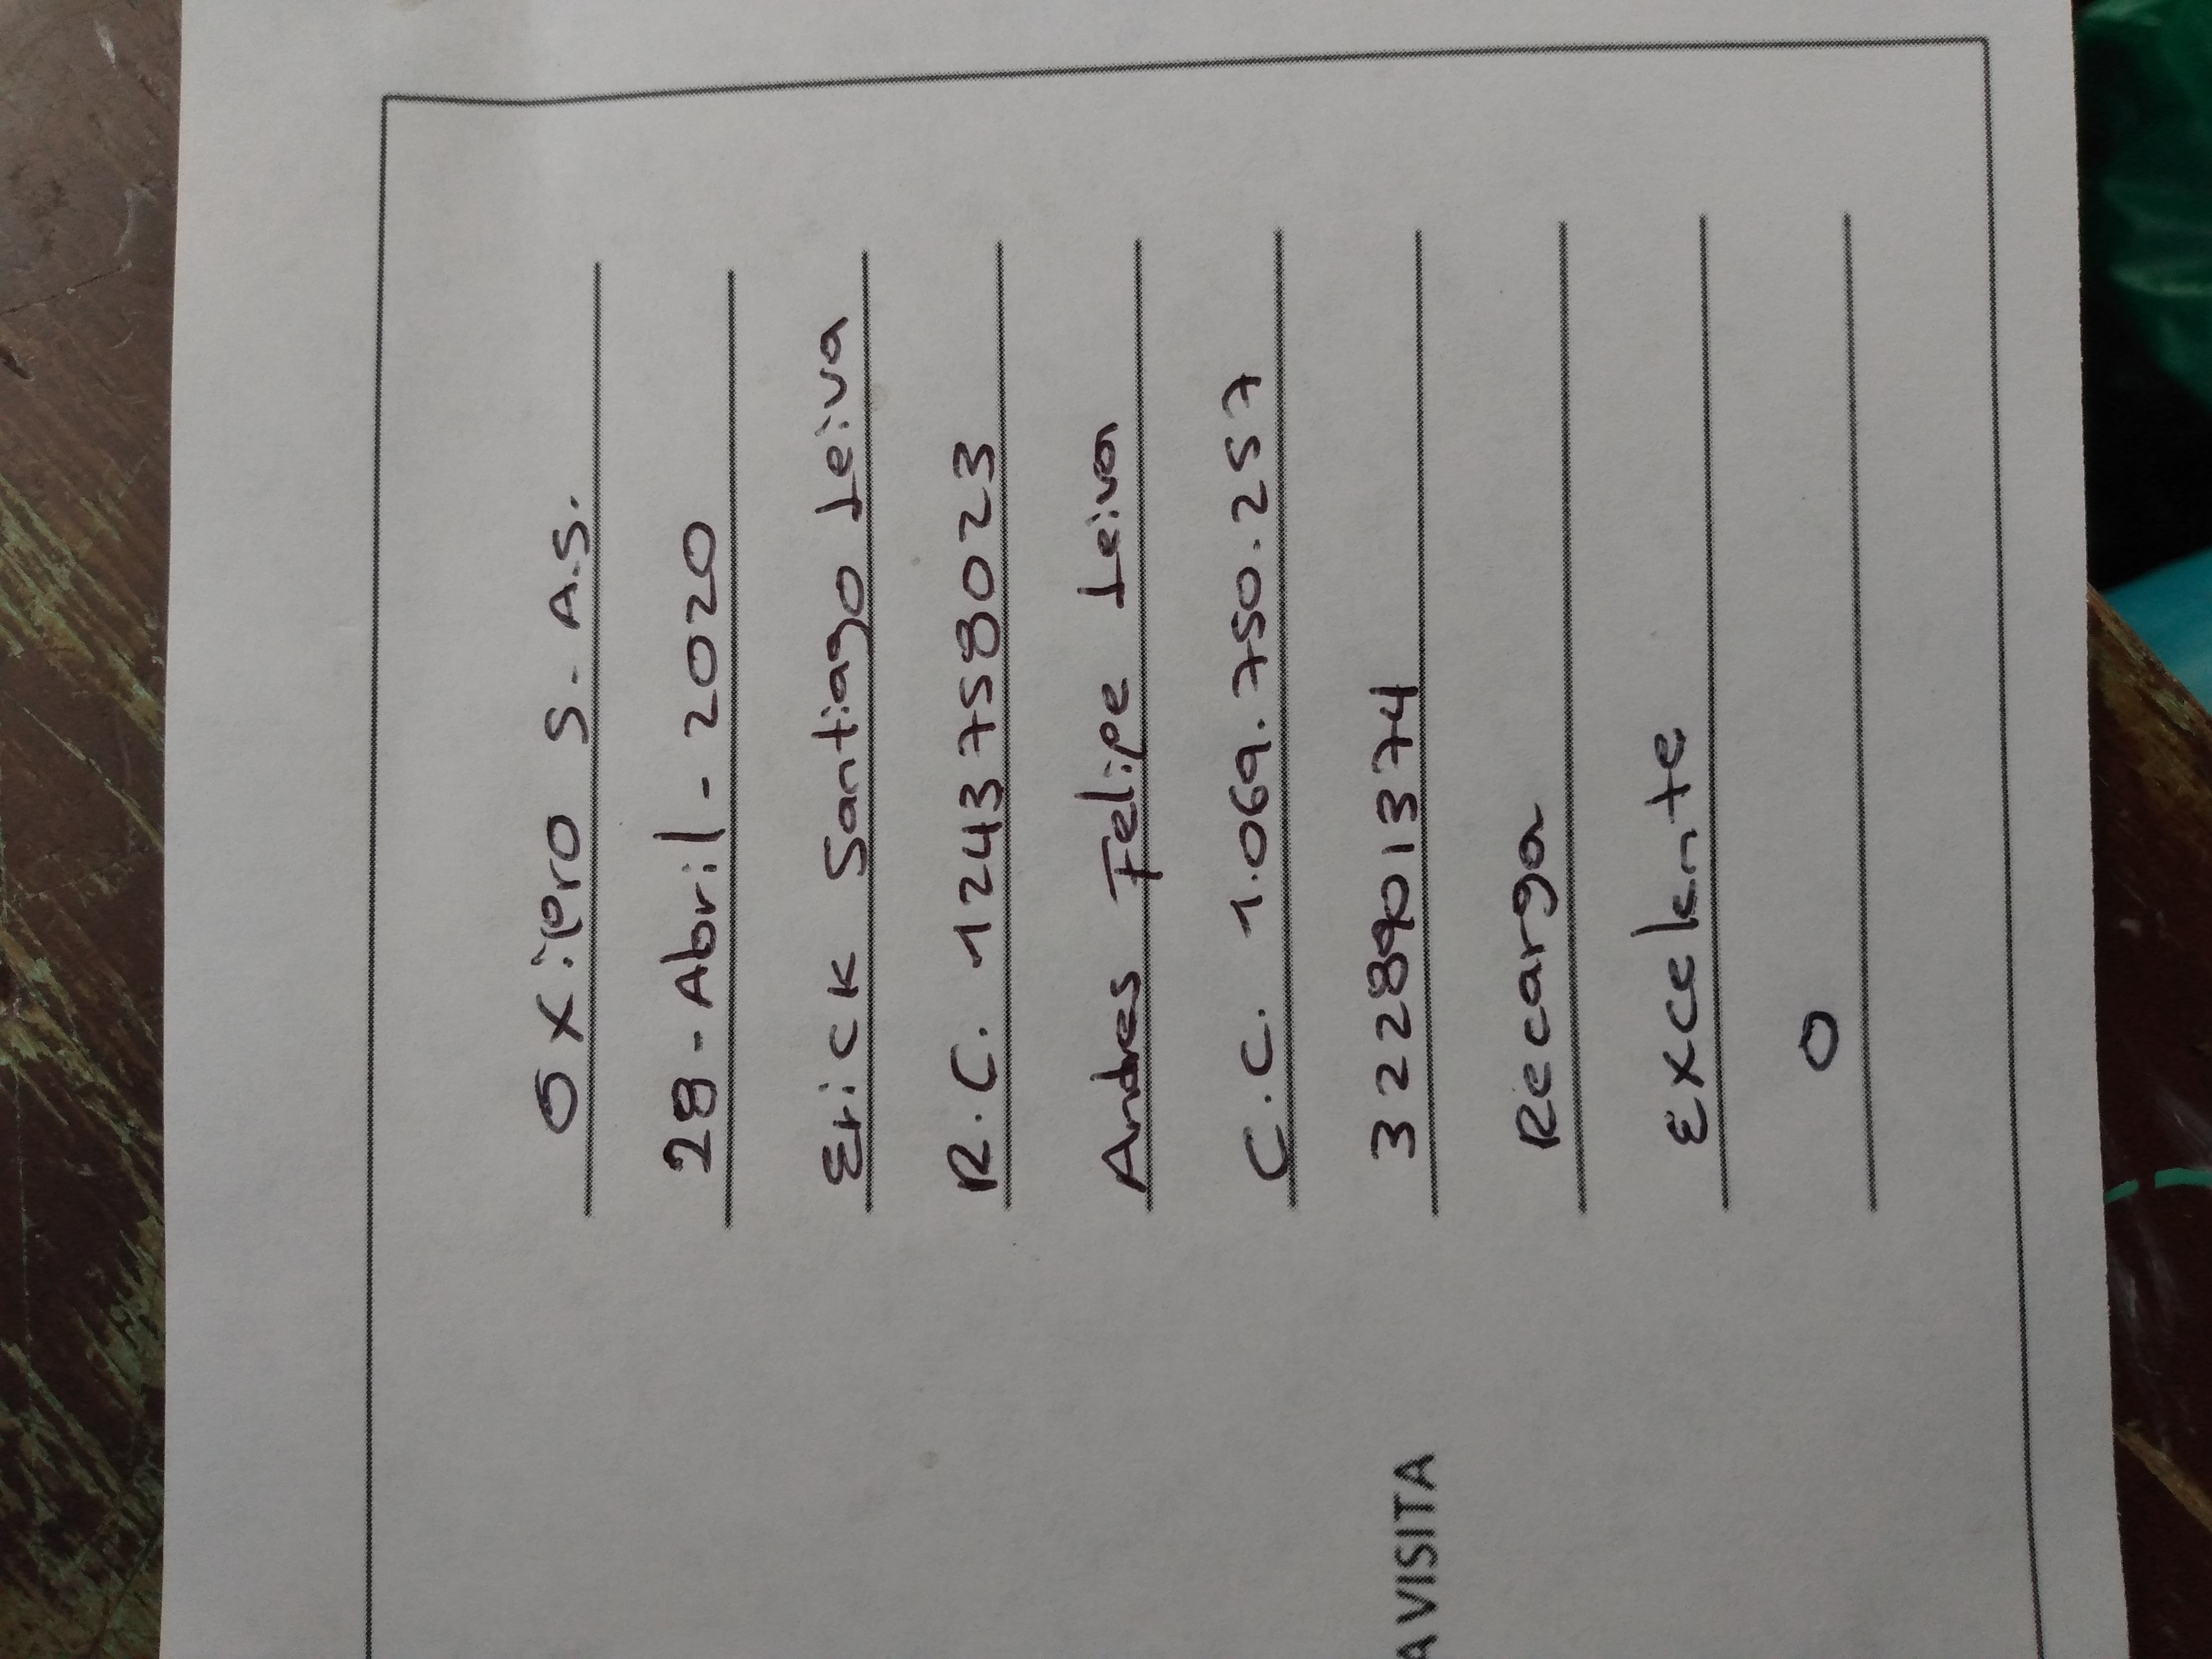 Oxipro S. A.S.
28-Abril-2020
Erick Santiago Leiva
R.C. 1243758023
Andres Felipe Leiva
C.C. 1.069.750.257
A VISITA 3228901374
Recarga
Excelente
0